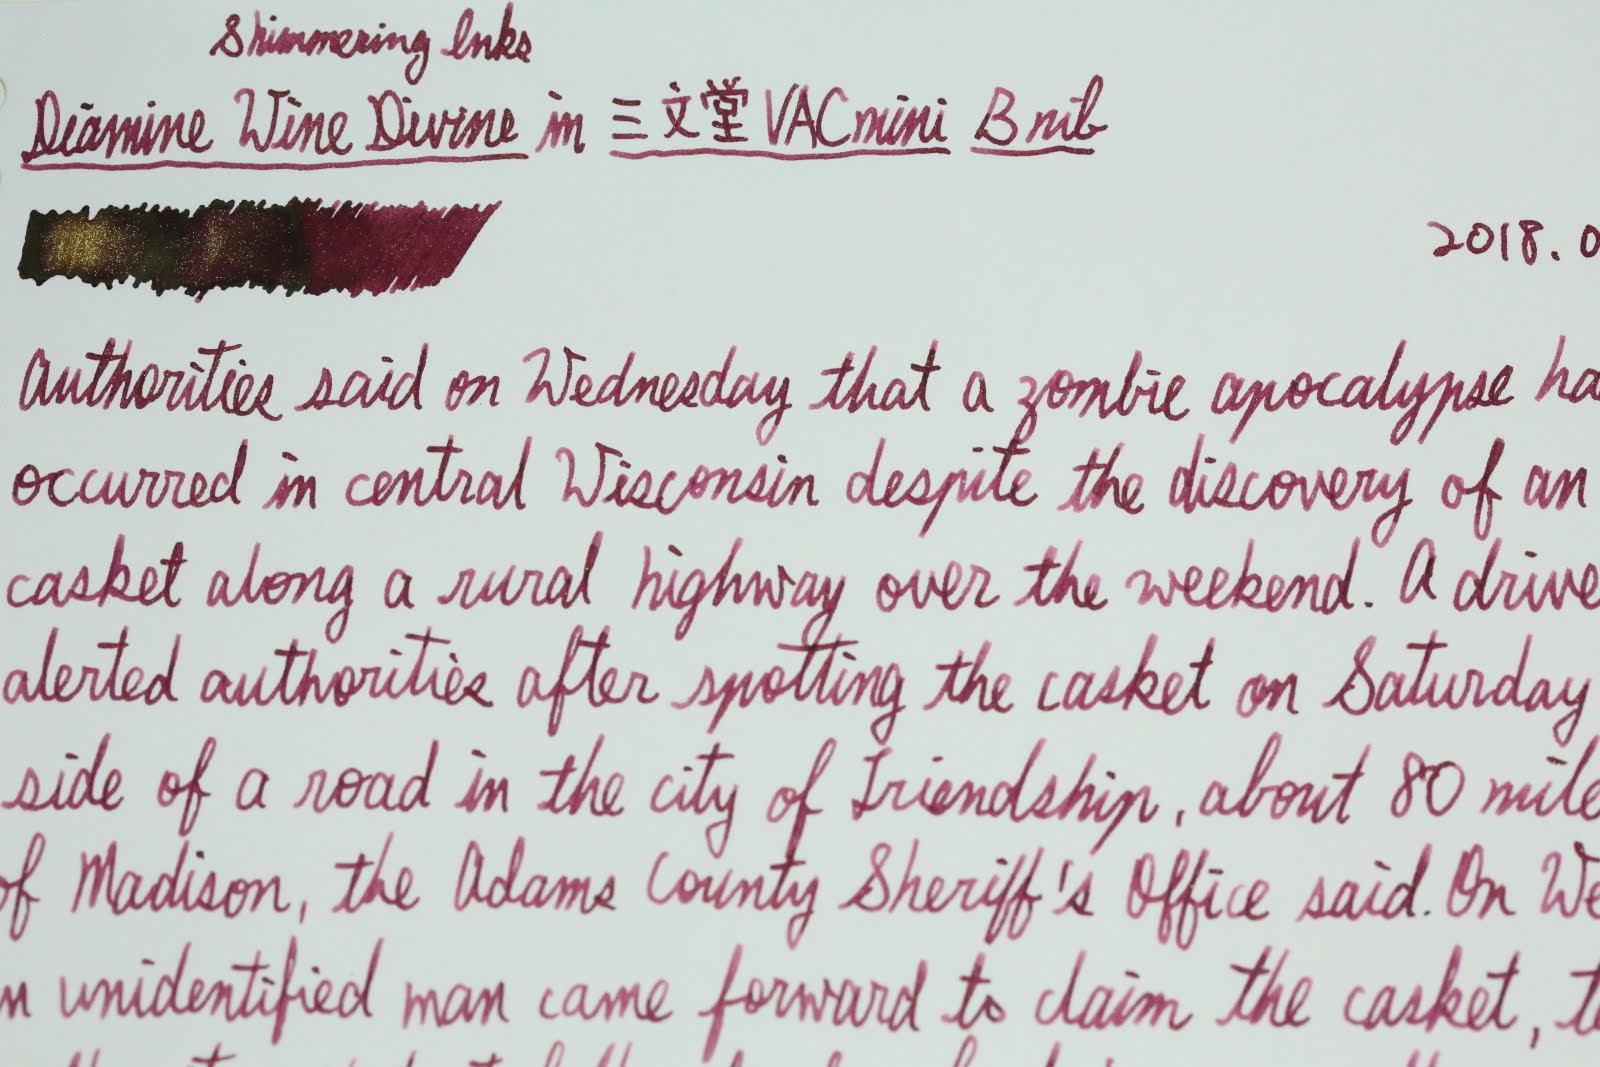 Shimmering Inks
Diamine Wine Divine in 三文堂 VACmini B nib
2018.0
Authorities said on Wednesday that a zombie apocalypse ha
occurred in central Wisconsin despite the discovery of an
casket along a rural highway over the weekend. A drive
alerted authorities after spotting the casket on Saturday
side of a road in the city of Friendship, about 80 mile
of Madison, the Adams County Sheriff's Office said. On We
n unidentified man came forward to claim the casket, t